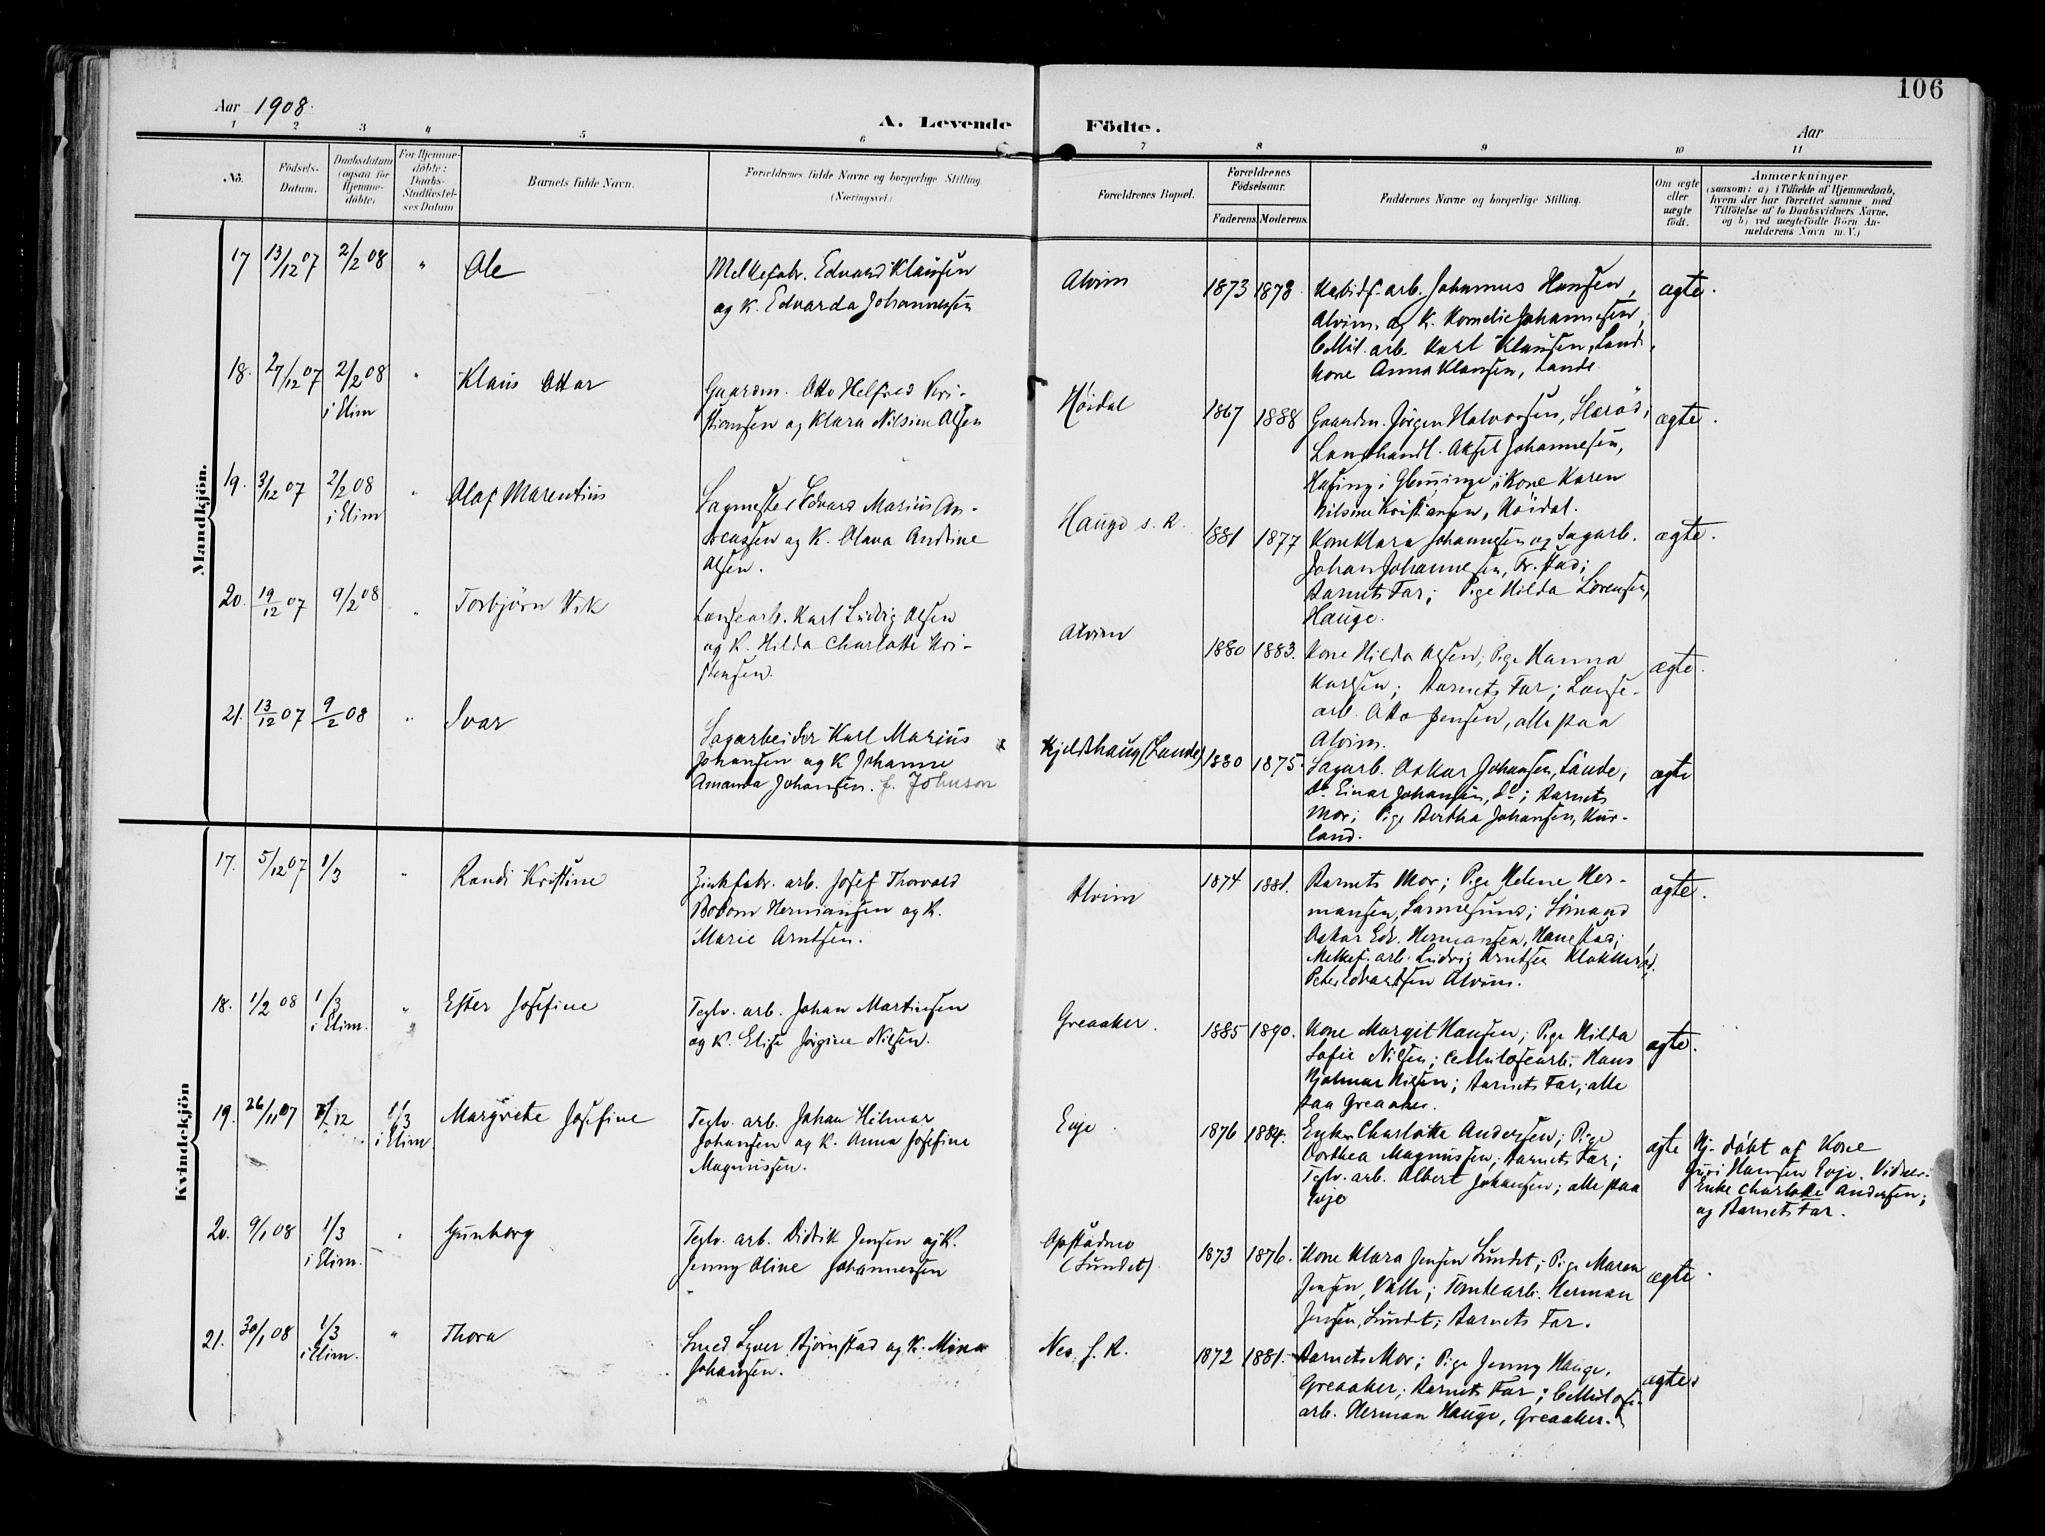 106
Aar 1908.
A. Levende Födte.
Aar
1 2 3 4 5 6 7 8 9 10 11
Nô.
Födsels-
Datum.
Daabsdatum
(ogsaa for
Hjemme-
döbte)
For Hjemme-
döbte:
Daabs-
Stadfæstel-
ses Datum
Barnets fulde Navn.
Forældrenes fulde Navne og borgerlige Stilling.
(Næringsvei.)
Forældrenes Bopæl.
Forældrenes
Födselsaar.
Faderens. Moderens.
Faddernes Navne og borgerlige Stilling.
Om ægte
eller
uægte
født.
Anmærkninger
(saasom: a) i Tilfælde af Hjemmedaab,
hvem der har forrettet samme med
Tilföielse af to Daabsvidners Navne,
og b) ved uægtefödte Börn An-
melderens Navn m. V.)
Mandkjön.
17 13/12 07 2/2 08 " Ole
Melkefabr. Edvard Klausen
og K. Edvarda Johannessen
Alvim 1873 1878
Karbidf. arb. Johannes Hansen,
Alvim, og K. Kornelie Johannesen,
Cellul. arb. Karl Klausen, Lande,
Kone Anna Klausen, Lande.
ægte.
18. 27/12 07 2/2 08 "
i Elim
Klaus Ottar
Gaardm. Otto Helfred Kri-
stiansen og Klara Nilsine Olsen
Høidal 1867 1888
Gaardm. Jörgen Halvorsen,
Landhandl. Aksel Johannesen,
i Glemminge; Kone Karen
Nilsine Kristiansen, Höidal.
ægte.
19. 3/12 07 2/2 08 "
i Elim
Olaf Marentius
Sagmester Edvard Marius An-
dreassen og K. Olava Andrine
Olsen.
Hauge s. K. 1881 1877
Kone Klara Johannesen og Sagarb.
Johan Johannesen, Fr.stad;
Barnets Far; Pige Hilda Lorensen,
Hauge.
ægte.
20. 19/12 07 9/2 08 " Torbjörn Vik
Landearb. Karl Ludvig Olsen
og K. Hilda Charlotte Kri-
stensen.
Alvim 1880 1883.
Kone Hilda Olsen; Pige Hanna
Karlsen; Barnets Far;
arb. Otto Jensen, alle paa
Alvim.
ægte.
21. 13/12 07 9/2 08 " Ivar
Sagarbeider Karl Marius
Johansen og K Johanne
Amanda Johansen. f. Johnson
Kjeldshaug (Lande) 1880 1875.
Sagarb. Oskar Johansen, Lande,
Do Einar Johansen, do; Barnets
Mor; Pige Bertha Johansen, Kur-
land.
ægte
Kvindekjön
17. 5/12 07 1/3 " Randi Kristine
Zinkfabr. arb. Josef Thorvald
Bodom Hermansen og K.
Marie Arntsen.
Alvim 1874 1881.
Barnets Mor; Pige Helene Her-
mansen, Sannesund; Sömand
Oskar Edv. Hermansen, Hanestad;
Melkef. arb. Ludvig Arntsen Klokkeröd,
Peter Edvardsen Alvim.
ægte.
18. 1/2 08 1/3 "
i Elim.
Ester Josefine
Teglv. arb. Johan Martinsen
og K. Elise Jörgine Nilsen.
Greaaker. 1885 1890.
Kone Margit Hansen; Pige Hilda
Sofie Nilsen; Cellulosearb. Hans
Hjalmar Nilsen; Barnets Far, alle
paa Greaaker.
ægte.
19. 26/11 07 /12 1/3
i Elim
Margrete Josefine
Teglv. arb. Johan Hilmar
Johansen og K. Anna Josefine
Magnussen.
Evje. 1876 1884.
Enke Charlotte Andersen; Pige
Dorthea Magnussen; Barnets Far;
Teglv. arb. Albert Johansen; alle paa
Evje
ægte
Hj. döbt af Kone
Guri Hansen Evje. Vidner:
Enke Charlotte Andersen;
og Barnets Far.
20. 9/1 08 1/3 "
i Elim.
Gunborg
Teglv. arb. Didrik Jensen og K.
Jenny Oline Johannessen
Opstadmo
(Sundet). 1873 1876.
Kone Klara Jensen Sundet; Pige Maren
Jensen, Valle; Tomtearb. Herman
Jensen, Sundet; Barnets Far.
ægte.
21. 30/1 08 1/3 "
i Elim.
Thora
Smed Lyder Bjørnstad og K. Mina
Johansen.
Nes s. K. 1872 1881.
Barnets Mor; Pige Jenny Hauge,
Greaaker; Barnets Far; Cellulose-
arb. Herman Hauge, Greaaker.
ægte.